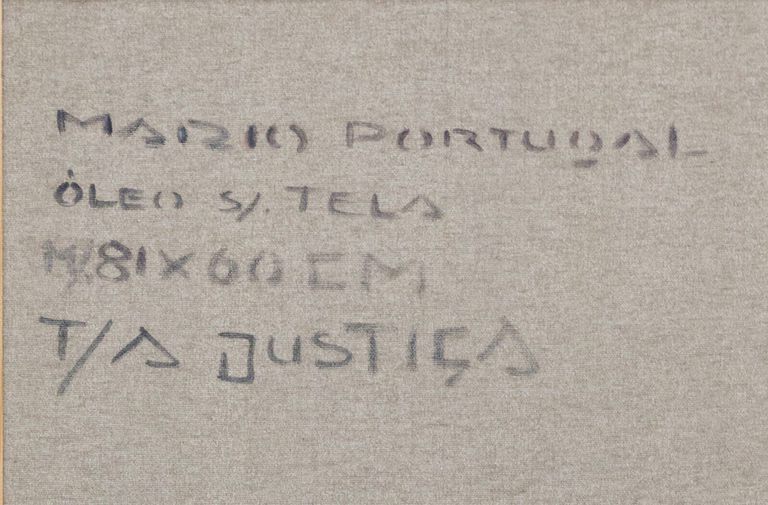 MARIO PORTUGAL
ÓLEO S/. TELA
M/.81X60 CM
T/A JUSTIÇA